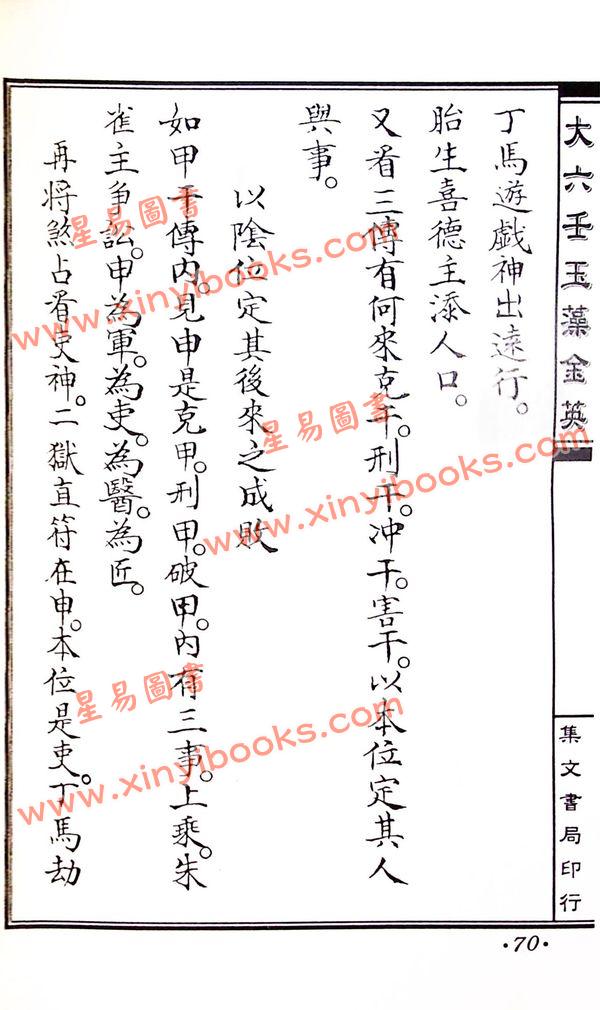 大六壬玉藻金英
集文書局印行
丁馬遊戲神出遠行。
胎生喜德主添人口。
又看三傳有何來克干。刑干。冲干。害干。以本位定其人
與事。
以陰位定其後來之成敗
如甲干傳內。見申是克甲。刑甲。破甲。內有三事。上乘。朱
雀主爭訟。申為軍。為吏。為醫。為匠。
再将煞占看吏神。二獄直符在申。本位是吏。丁馬劫
·70·
星易圖書
www.xinyibooks.com
星易圖書
www.xinyibooks.com
星易圖書
www.xinyibooks.com